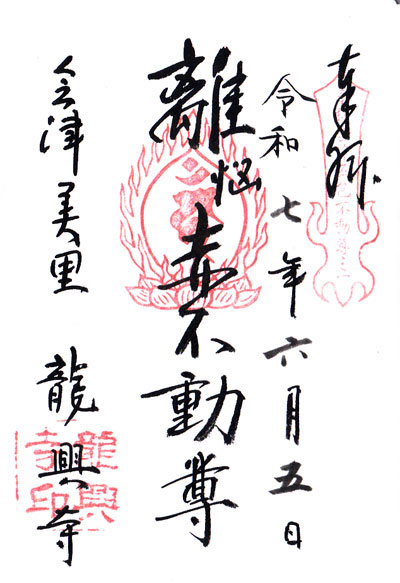 奉拝
令和七年六月五日
離悩
赤不動尊
会津美里
龍興寺
龍興寺印